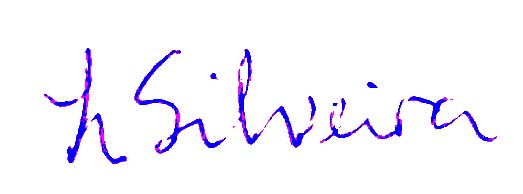 h Silveira